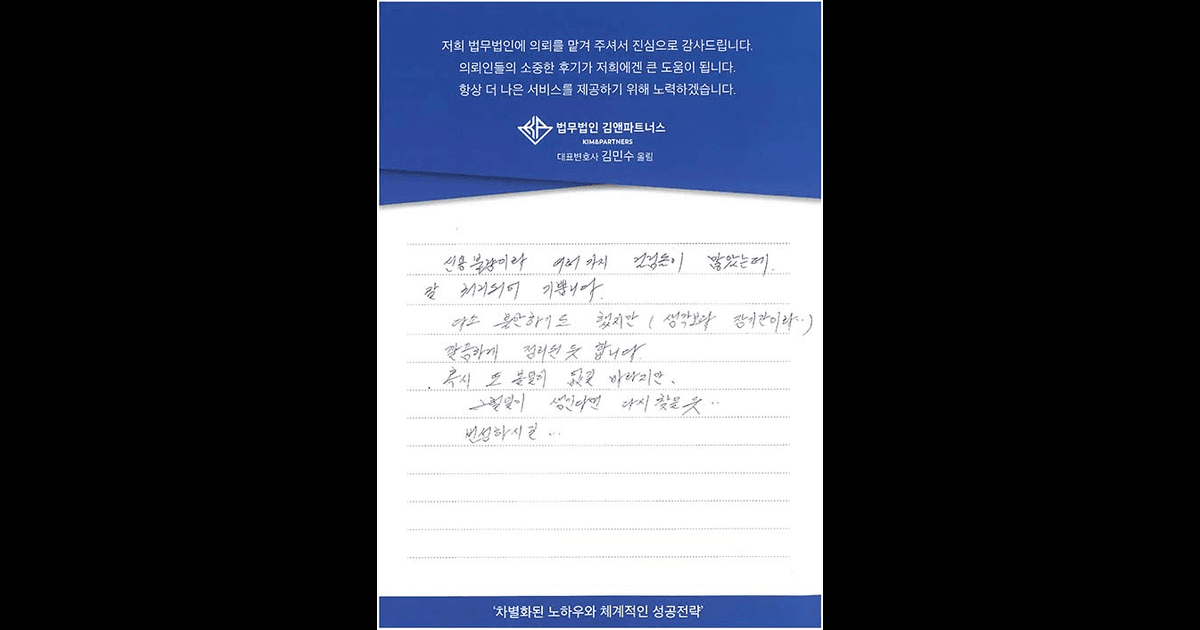 저희 법무법인에 의뢰를 맡겨 주셔서 진심으로 감사드립니다.
의뢰인들의 소중한 후기가 저희에겐 큰 도움이 됩니다.
항상 더 나은 서비스를 제공하기 위해 노력하겠습니다.
법무법인 김앤파트너스
KIM&PARTNERS
대표변호사 김민수 올림
신용불량이라 여러가지 걱정들이 많았는데.
잘 처리되어 기쁩니다.
다소 불안하기도 했지만 (생각보다 장기간이라..)
깔끔하게 정리된 듯 합니다.
혹시 또 없길 바라지만.
그럴일이 생긴다면 다시 찾을 듯..
번성하시길...
'차별화된 노하우와 체계적인 성공전략'